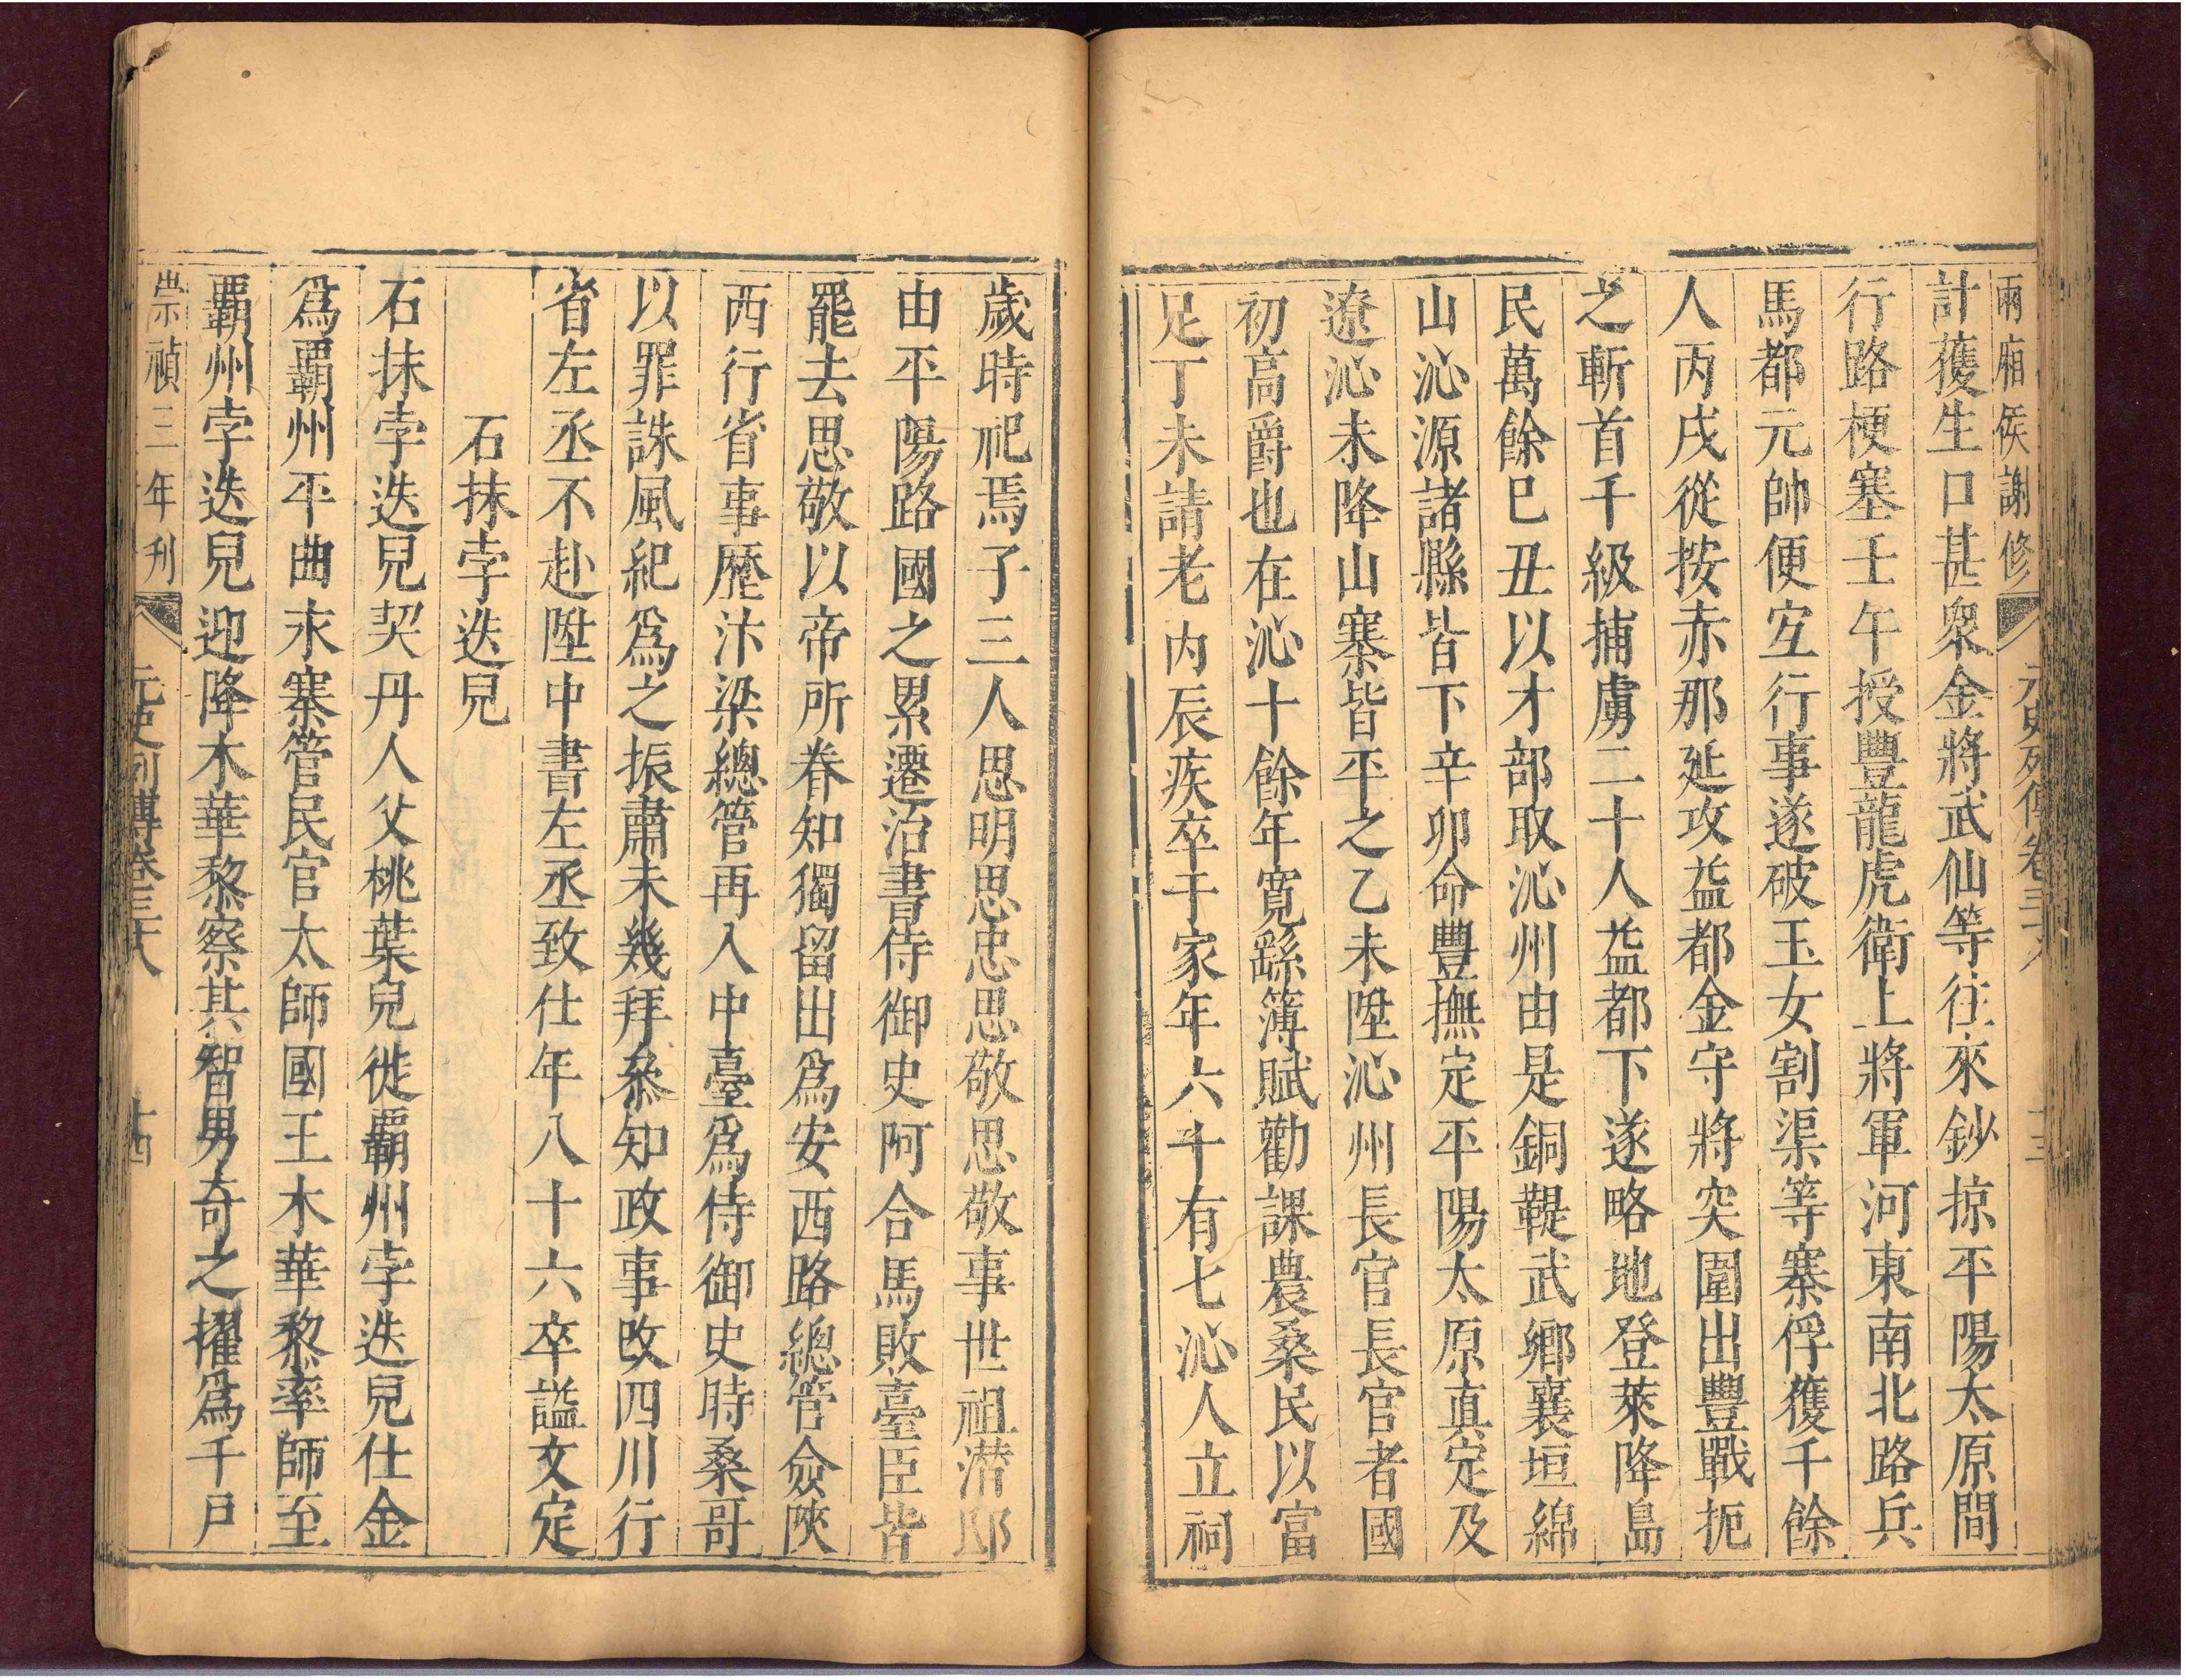 兩廂侯謝修　元史列傳卷三十八　十三
計獲生口甚衆金將武仙等往來鈔掠平陽太原間
行路梗塞壬午授豐龍虎衛上將軍河東南北路兵
馬都元帥便宜行事遂破玉女割渠等寨俘獲千餘
人丙戌從按赤那延攻益都金守將突圍出豐戰扼
之斬首千級捕虜二十人益都下遂略地登萊降島
民萬餘巳丑以才部取沁州由是銅鞮武鄉襄垣綿
山沁源諸縣皆下辛卯命豐撫定平陽太原真定及
遼沁未降山寨皆平之乙未陞沁州長官長官者國
初高爵也在沁十餘年寬繇簿賦勸課農桑民以富
足丁未請老丙辰疾卒于家年六十有七沁人立祠
歲時祀焉子三人思明思忠思敬思敬事世祖潛邸
由平陽路國之累遷治書侍御史阿合馬敗臺臣皆
罷去思敬以帝所眷知獨留出爲安西路總管僉陝
西行省事歷汴梁總管再入中臺爲侍御史時桑哥
以罪誅風紀爲之振肅未幾拜叅知政事改四川行
省左丞不赴陞中書左丞致仕年八十六卒謚文定
石抹孛迭兒
石抹孛迭兒契丹人父桃葉兒徙霸州孛迭兒仕金
爲霸州平曲水寨管民官太師國王木華黎率師至
霸州孛迭兒迎降木華黎察其智勇奇之擢爲千戶
崇禎三年刋　元史列傳卷三十八　十四